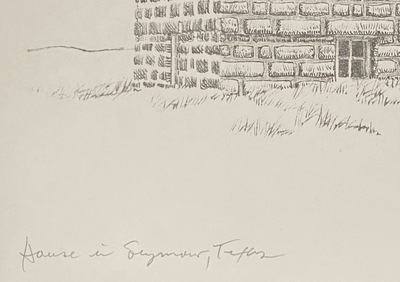 House in Seymour, Texas